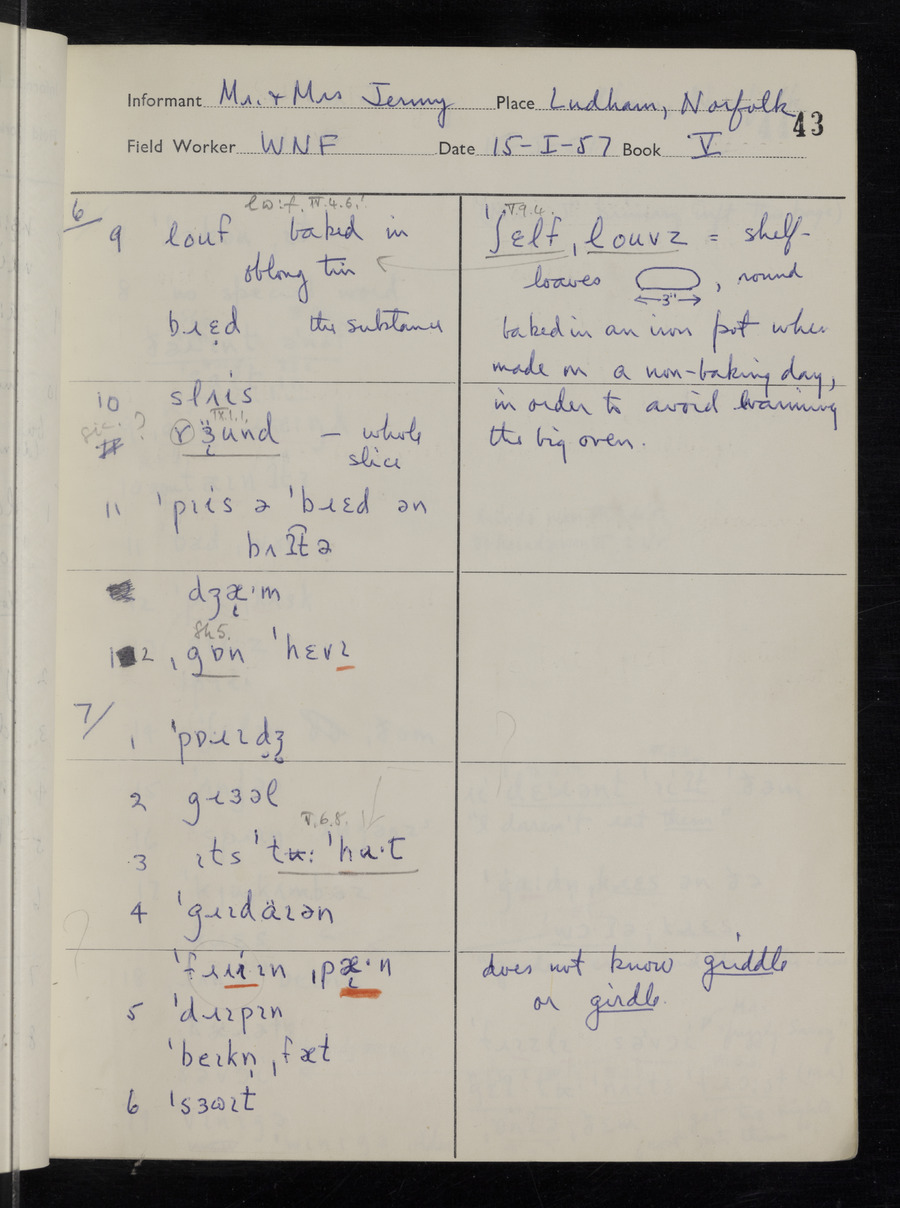 Informant Mr. + Mrs Jermy Place Ludham, Norfolk
43
Field Worker WNF Date 15-I-57 Book V
6/
IV.4.6.
9 louf baked in
oblong tin
bɹɛd the substance
10 slʌis
sic. ?
IX.1.1.
ˈɹɜund — whole
slice
11 ˈpɹis ə ˈbɹɛd ən
bʌʔtə
dʒæ·m
8h5.
12 ˌgɒn ˈhɛvɪ
7/
1 ˈpɒɹɪdʒ
2 gɹɜəl
V.6.8.
3 ɪts ˈtʉ: ˈhɑ·t
4 ˈgɹɪdäɪən
ˈfɹʌiɪn ˌpæ·n
5 ˈdɹɪpɪn
ˈbeɪkn̩ ˌfæt
6 ˈsɜωɪt
V.9.4.
ˈʃɛlf ˌlouvz = shelf-
loaves , round
3"
baked in an iron pot when
made on a non-baking day,
in order to avoid warming
the big oven.
does not know griddle
or girdle.